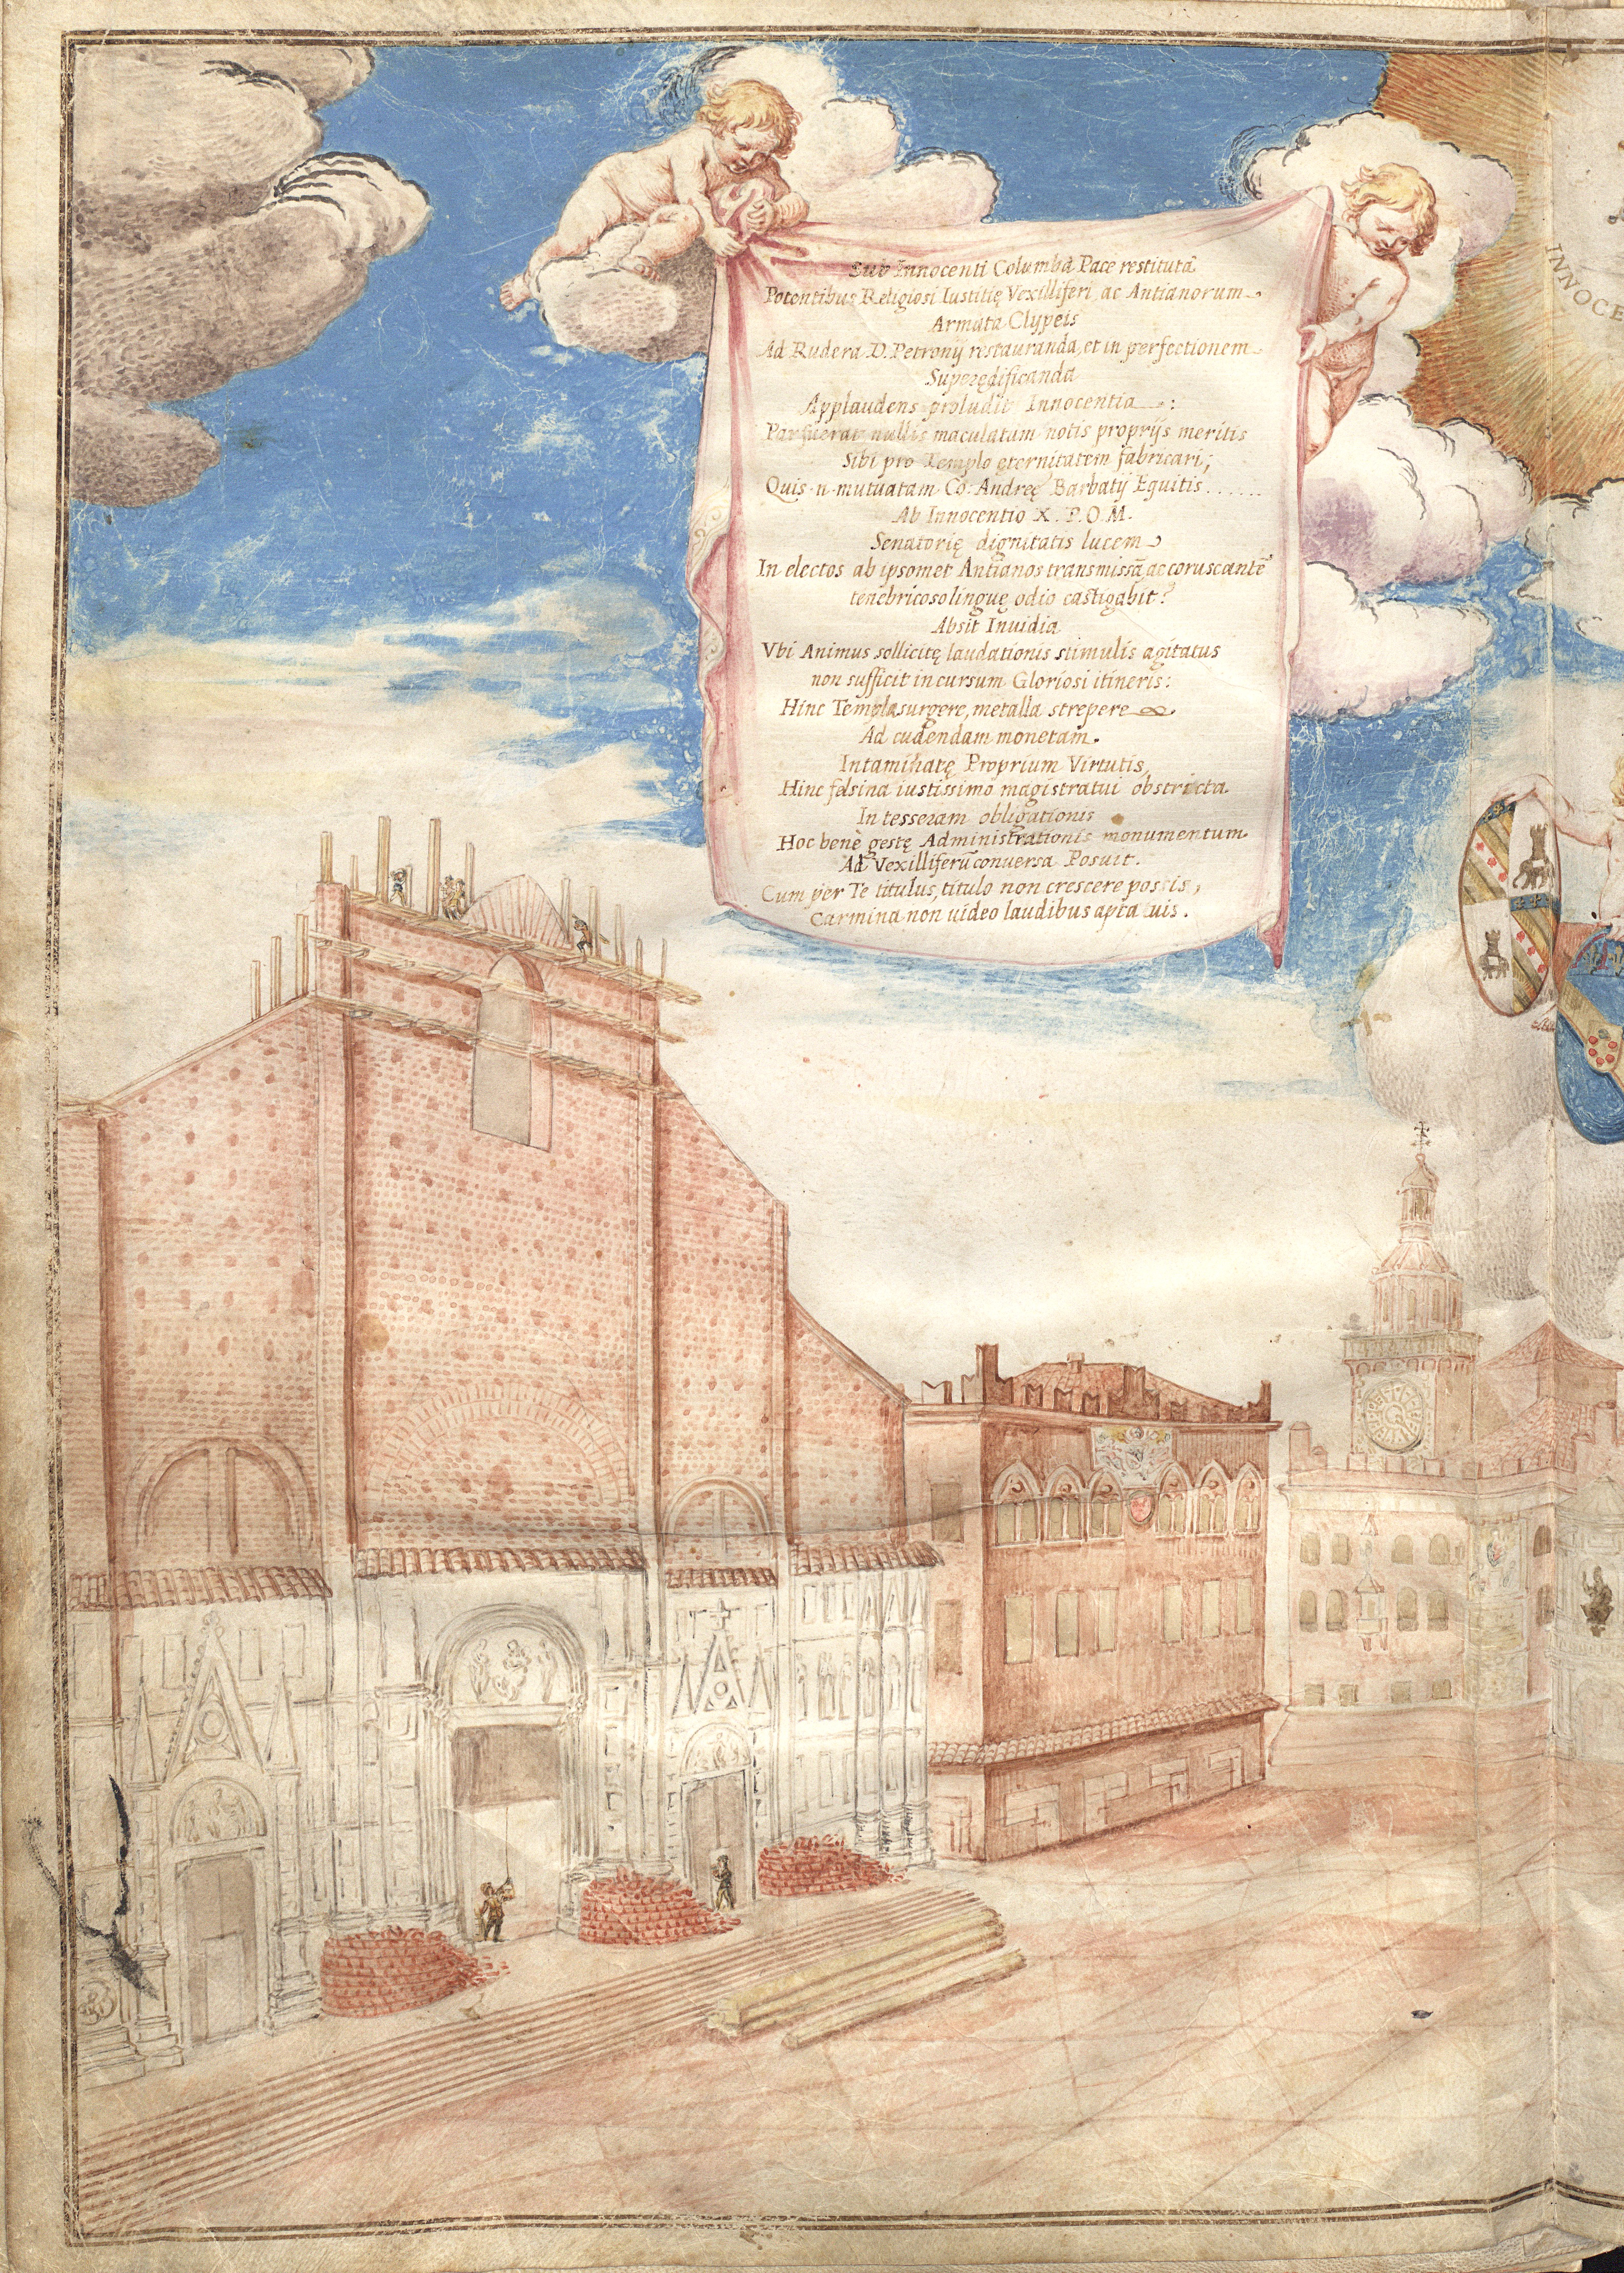 Sub Innocenti Columba Pace restitutā
Potentibus Religiosi Iustitię Vexilliferi ac Antianorum
Armata Clypeis
Ad Rudera D. Petronij restauranda, et in perfectionem
Superędificanda
Applaudens proludit Innocentia :
Par fuerat nullis maculatam notis proprijs meritis
Sibi pro Templo ęternitatem fabricari;
Quis n mutuatam Co: Andreę Barbatij Equitis......
Ab Innocentio X. P.O.M.
Senatorię dignitatis lucem
In electos ab ipsomet Antianos transmissā, ac coruscantē
tenebricoso linguę odio castigabit?
Absit Inuidia
Vbi Animus sollicitę laudationis stimulis agitatus
non sufficit in cursum Gloriosi itineris:
Hinc Templa surgere, metalla strepere
Ad cudendam monetam.
Intaminatę Proprium Virtutis,
Hinc felsina iustissimo magistratui obstricta
In tesseram obligationis
Hoc benè gestę Administrationis monumentum
Ad Vexilliferū conuersa Posuit.
Cum per Te titulus, titulo non crescere possis,
Carmina non uideo laudibus apta tuis.
INNOCE